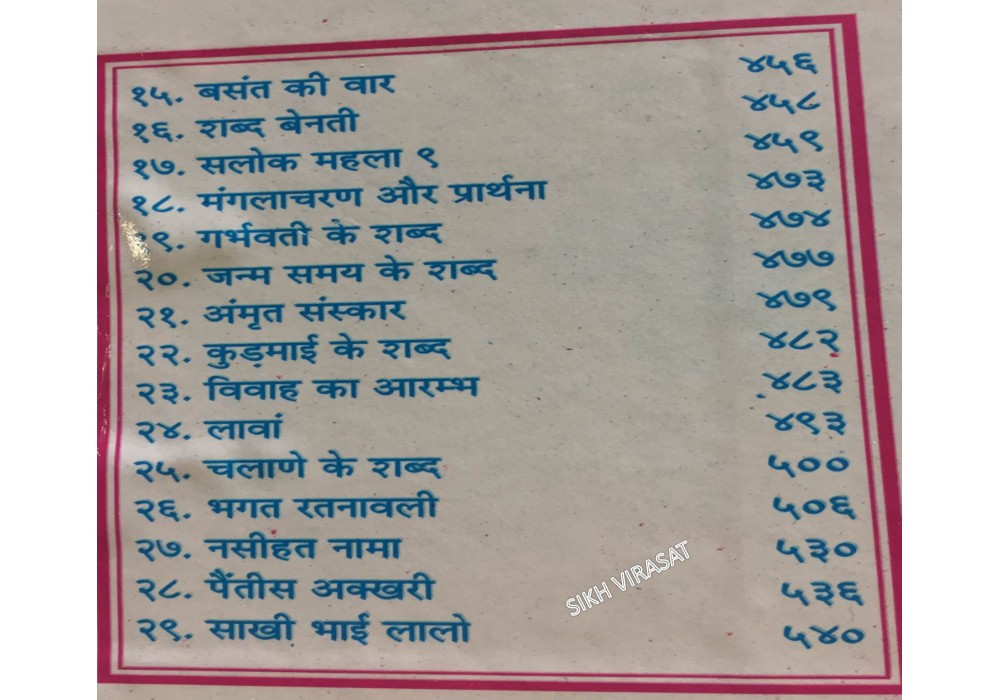 १५. बसंत की वार ४५६
१६. शब्द बेनती ४५८
१७. सलोक महला ९ ४५९
१८. मंगलाचरण और प्रार्थना ४७३
१९. गर्भवती के शब्द ४७४
२०. जन्म समय के शब्द ४७७
२१. अंमृत संस्कार ४७९
२२. कुड़माई के शब्द ४८२
२३. विवाह का आरम्भ ४८३
२४. लावां ४९३
२५. चलाणे के शब्द ५००
२६. भगत रतनावली ५०६
२७. नसीहत नामा ५३०
२८. पैंतीस अक्खरी ५३६
२९. साखी भाई लालो ५४०
SIKH VIRASAT